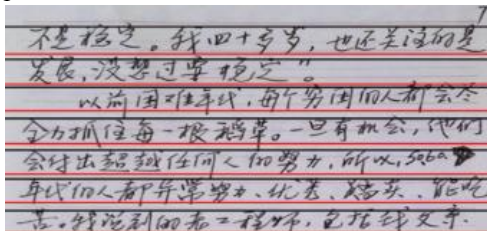 7
不是稳定。我四十多岁，也还关注的是
发展，没想过要稳定”。
以前困难年代，每个穷困的人都会尽
全力抓住每一根稻草。一旦有机会，他们
会付出超越任何人的努力，所以，50、60
年代的人都非常努力、优秀、踏实、能吃
苦。我说到的老工程师，包括钱文京、